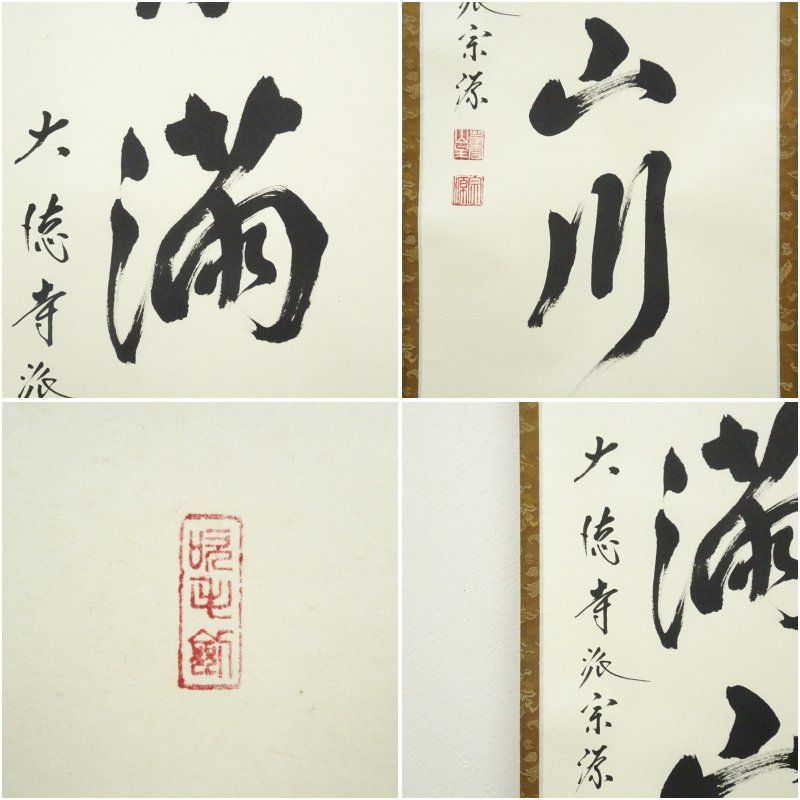 満
大徳寺派
派宗源
山川
満
山
大徳寺派宗源